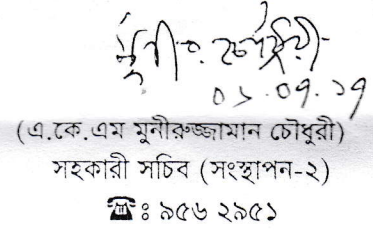 ০১.০৭.১৭
(এ.কে.এম মুনীরুজ্জামান চৌধুরী)
সহকারী সচিব (সংস্থাপন-২)
☎ঃ ৯৫৬ ২৯৫১